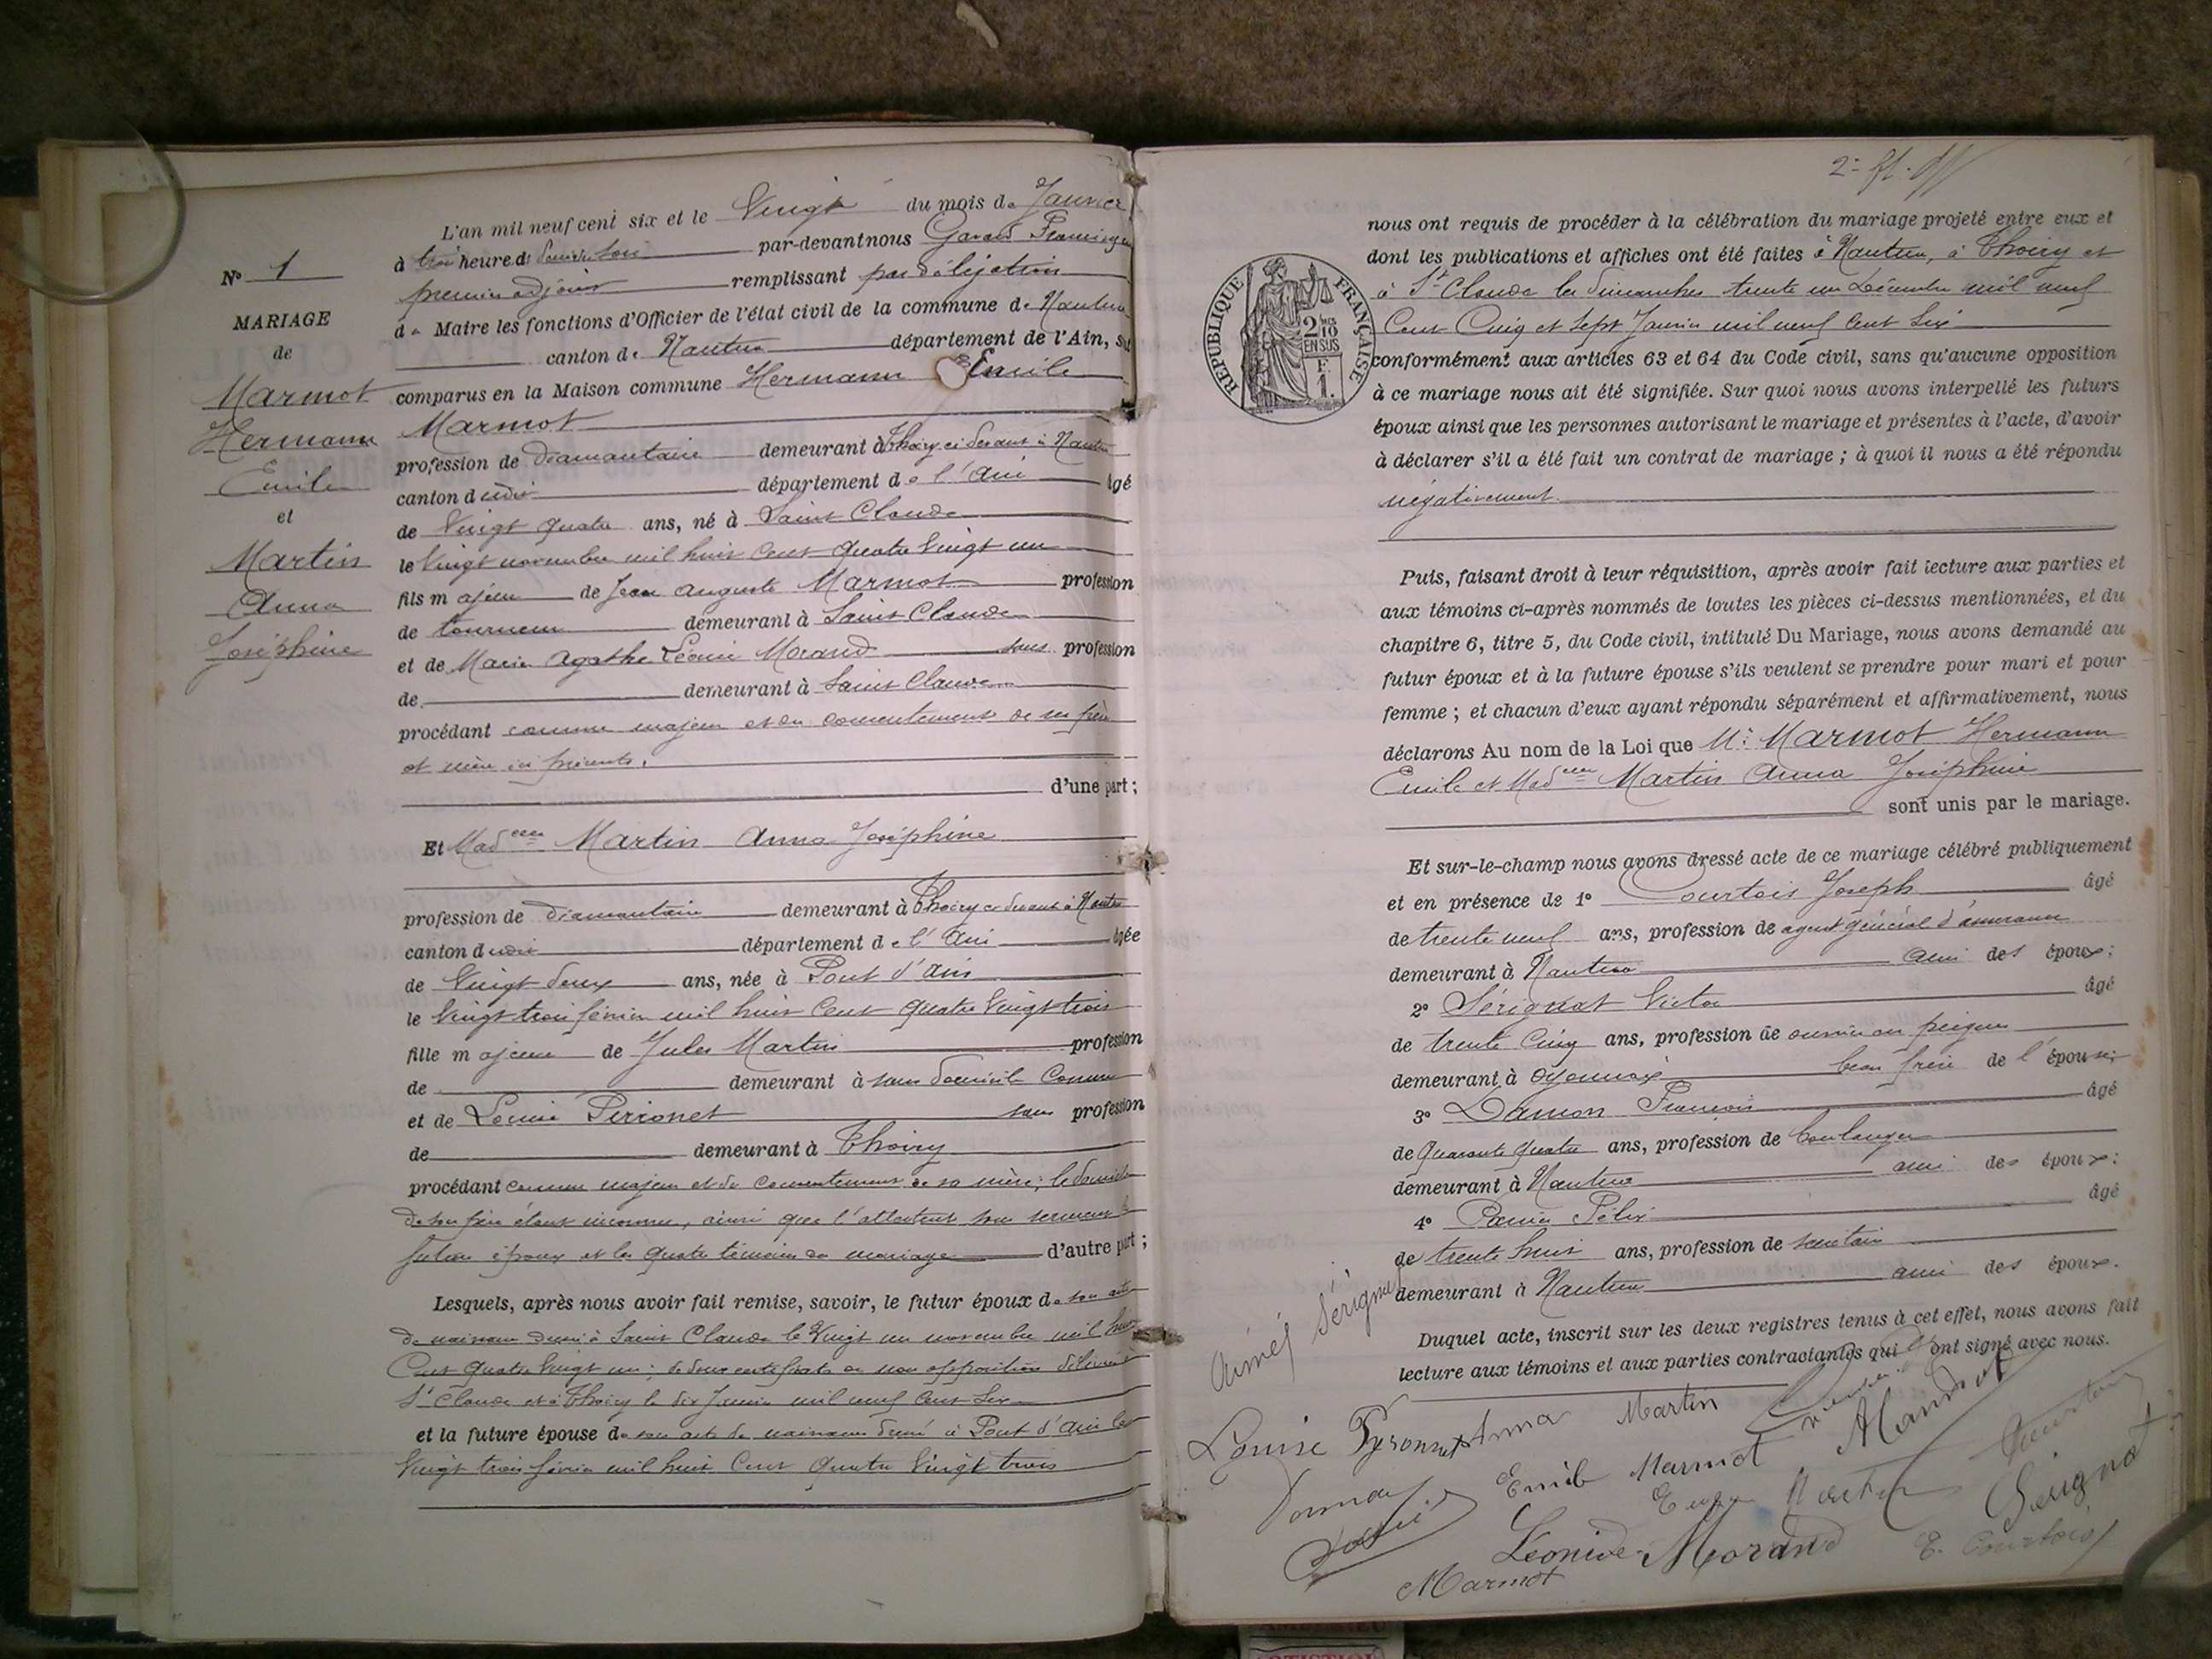 N° 1
MARIAGE
de
Marmot
Hermann
Emile
et
Martin
Anna
Joséphine
L'an mil neuf cent six et le Vingt du mois de Janvier
à trois heures du soir par-devant nous
premier adjoint remplissant par délégation
de Maire les fonctions d'Officier de l'état civil de la commune de Nantua
canton de Nantua département de l'Ain, sont
comparus en la Maison commune Hermann Emile
Marmot
profession de diamantaire demeurant à Thoiry ci devant à Nantua
canton dudit département de l'Ain âgé
de Vingt quatre ans, né à Saint Claude
le Vingt novembre mil huit Cent quatre Vingt un
fils majeur de Jean Auguste Marmot profession
de tourneur demeurant à Saint Claude
et de Marie Agathe Léonie Morand sans profession
de demeurant à Saint Claude
procédant comme majeur et du consentement de ses père
et mère ici présents,
d'une part ;
Et Mad elle Martin Anna Joséphine
profession de diamantaire demeurant à Thoiry ci devant à Nantua
canton dudit département de l'Ain âgée
de Vingt deux ans, née à Pont d'Ain
le Vingt trois février mil huit Cent quatre Vingt trois
fille majeure de Jules Martin profession
de demeurant à sans domicile Connu
et de Louise Perronet sans profession
de demeurant à Thoiry
procédant comme majeur et du consentement de sa mère ; le domicile
de son père étant inconnu, ainsi que l'attestent sous serment le
futur époux et les quatre témoins du mariage d'autre part ;
Lesquels, après nous avoir fait remise, savoir, le futur époux de son acte
de naissance dressé à Saint Claude le Vingt un novembre mil huit
Cent quatre Vingt un ; de deux certificats de non opposition délivrés à
St Claude et à Thoiry le dix Janvier mil neuf Cent Six
et la future épouse de son acte de naissance dressé à Pont d'Ain le
Vingt trois février mil huit Cent quatre Vingt trois
RÉPUBLIQUE FRANÇAISE
2/10
EN SUS
F.
1.
nous ont requis de procéder à la célébration du mariage projeté entre eux et
dont les publications et affiches ont été faites à Nantua, à Thoiry et
à St Claude les dimanches trente un Décembre mil neuf
Cent Cinq et Sept Janvier mil neuf Cent Six
conformément aux articles 63 et 64 du Code civil, sans qu'aucune opposition
à ce mariage nous ait été signifiée. Sur quoi nous avons interpellé les futurs
époux ainsi que les personnes autorisant le mariage et présentes à l'acte, d'avoir
à déclarer s'il a été fait un contrat de mariage ; à quoi il nous a été répondu
négativement.
Puis, faisant droit à leur réquisition, après avoir fait lecture aux parties et
aux témoins ci-après nommés de toutes les pièces ci-dessus mentionnées, et du
chapitre 6, titre 5, du Code civil, intitulé Du Mariage, nous avons demandé au
futur époux et à la future épouse s'ils veulent se prendre pour mari et pour
femme ; et chacun d'eux ayant répondu séparément et affirmativement, nous
déclarons Au nom de la Loi que Mr Marmot Hermann
Emile et Mad elle Martin Anna Joséphine
sont unis par le mariage.
Et sur-le-champ nous avons dressé acte de ce mariage célébré publiquement
et en présence de 1° Courtois Joseph âgé
de trente neuf ans, profession de agent général d'assurance
demeurant à Nantua ami des époux ;
2° Sérignat Victor âgé
de trente Cinq ans, profession de ouvrier en peignes
demeurant à Oyonnax beau frère de l'épouse ;
3° Damon François âgé
de Quarante quatre ans, profession de boulanger
demeurant à Nantua ami des époux ;
4° Félix âgé
de trente huit ans, profession de secrétaire
demeurant à Nantua ami des époux.
Duquel acte, inscrit sur les deux registres tenus à cet effet, nous avons fait
lecture aux témoins et aux parties contractantes qui ont signé avec nous.
Aimé Sérignat
Louise Pyronnet Anna Martin
Emile Marmot
Léonide Morand
Sérignat
E. Courtois
Marmot